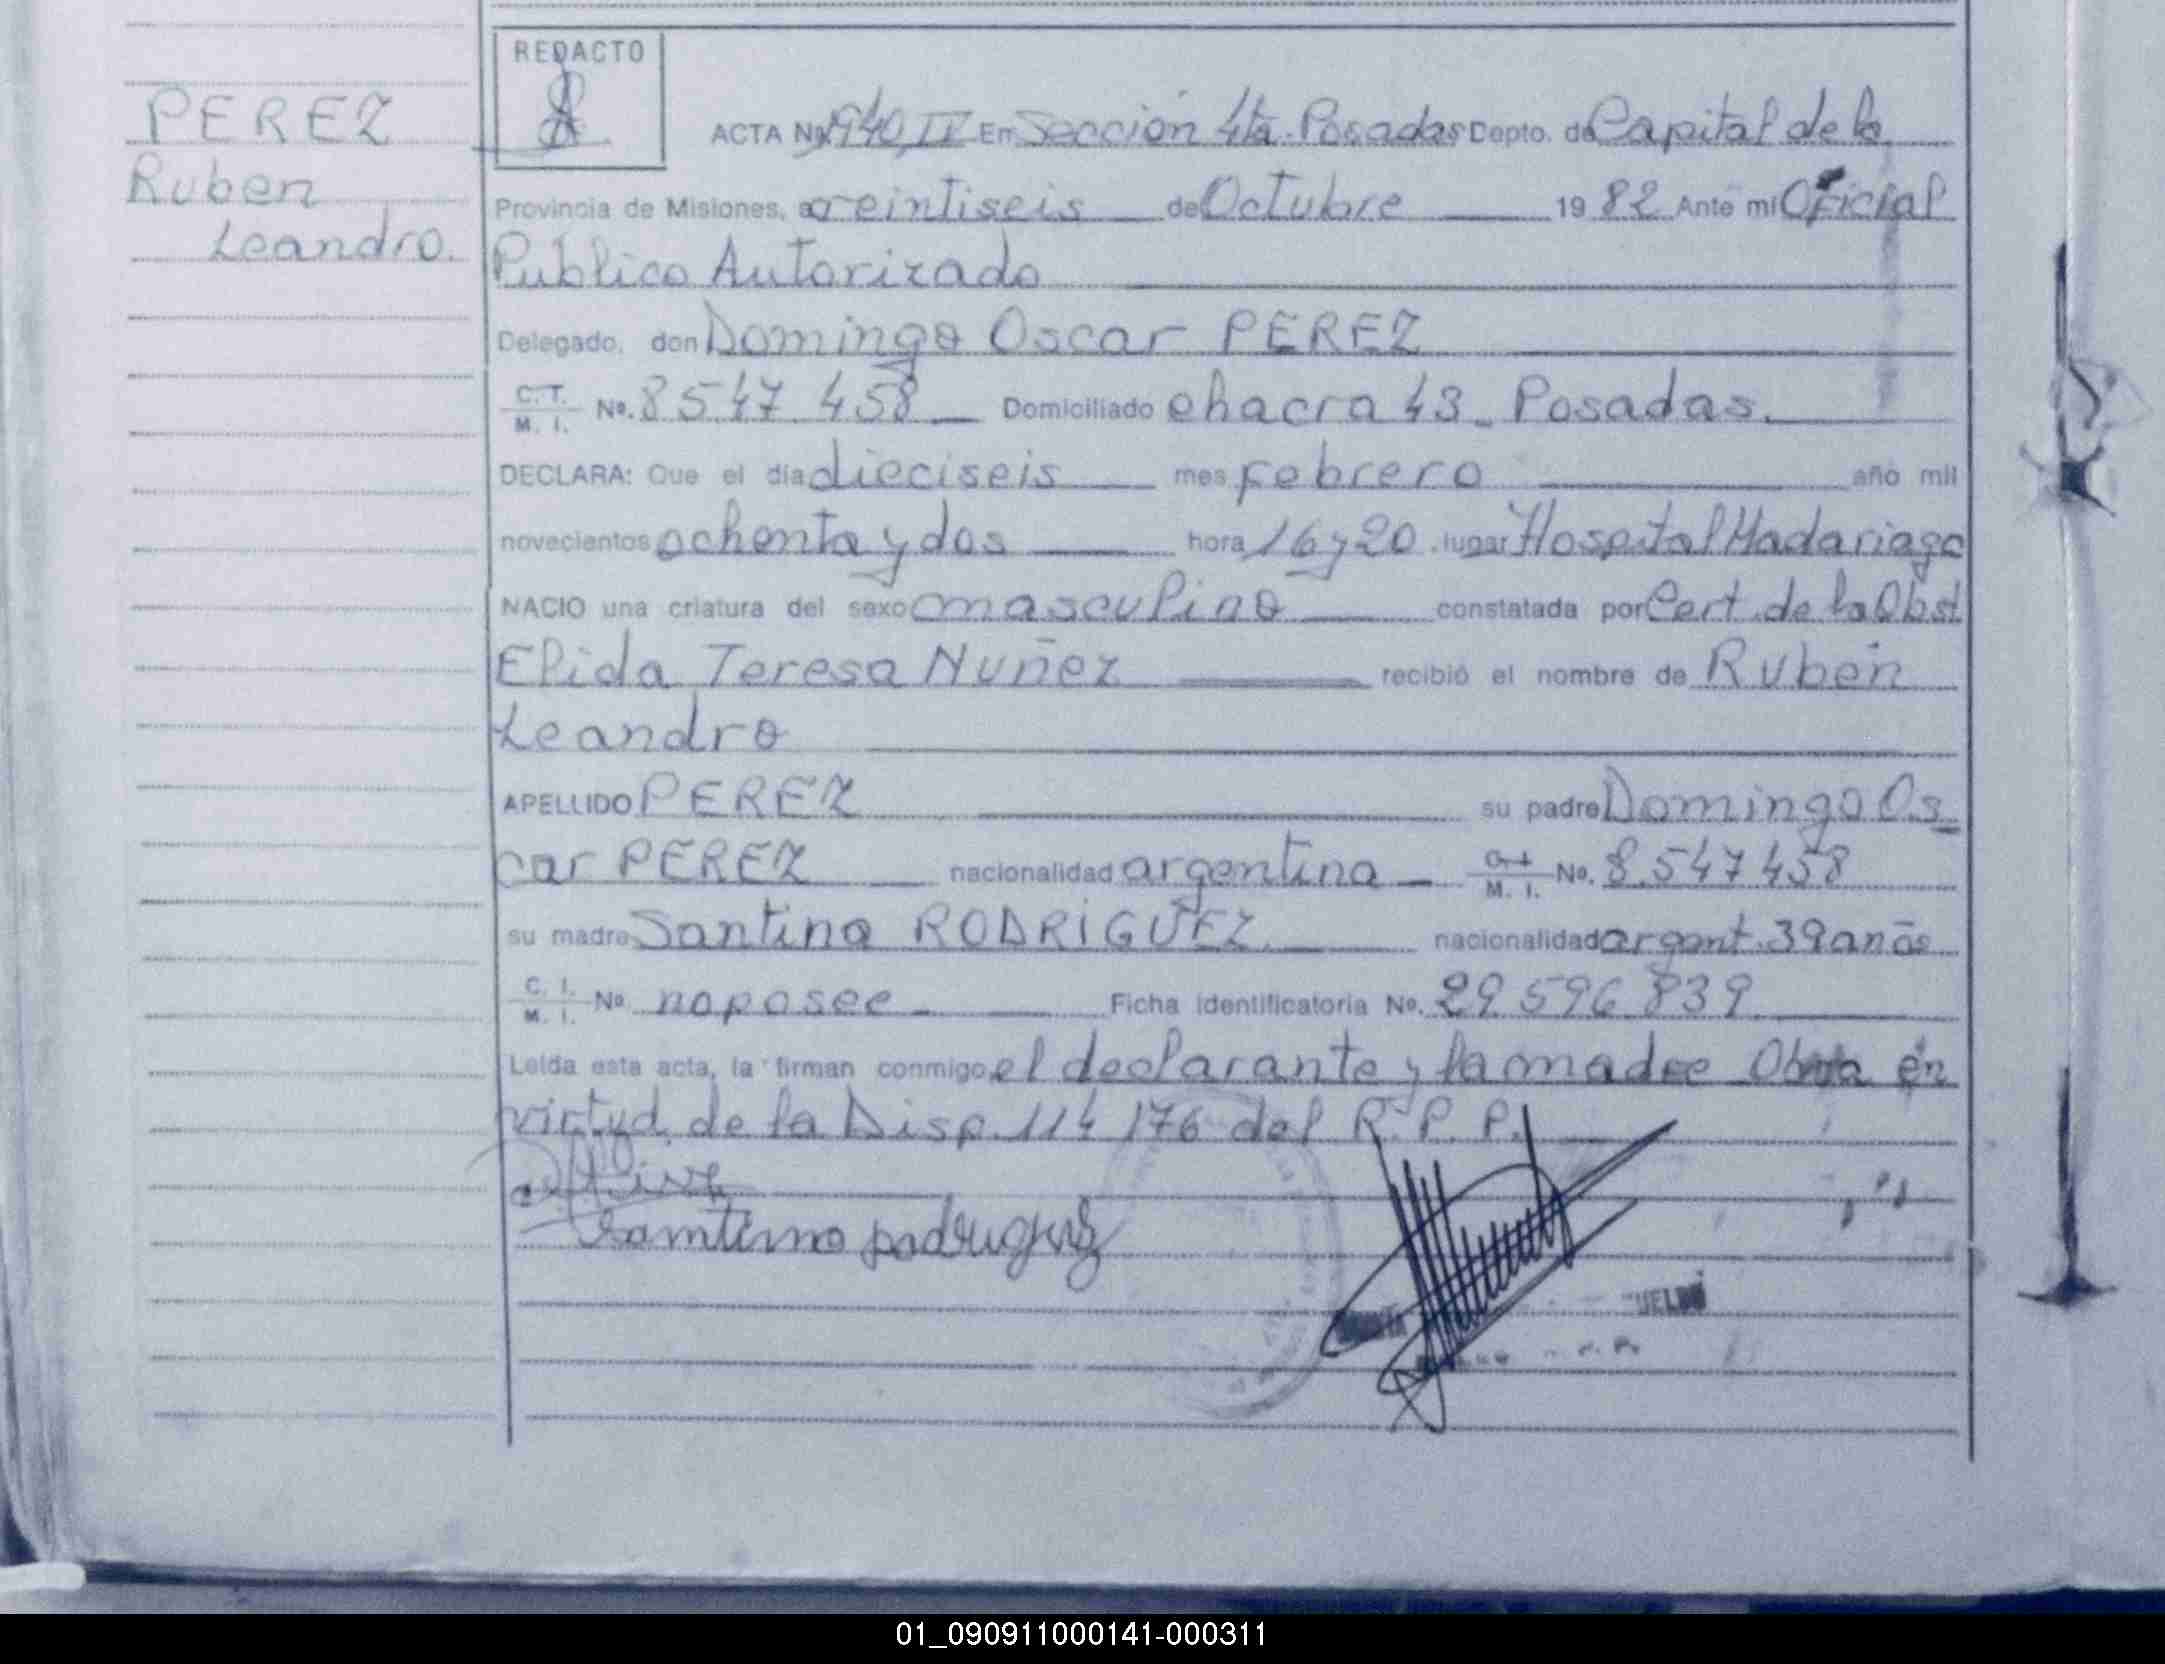 PEREZ
Ruben
Leandro.
REDACTO
ACTA No 940 IV En Sección 4ta. Posadas Depto. de Capital de la
Provincia de Misiones, a veintiseis de Octubre 19 82 Ante mi Oficial
Publico Autorizado
Delegado, don Domingo Oscar PEREZ
C.T. M. I. No. 8547 458 Domiciliado chacra 43 - Posadas.
DECLARA: Que el día dieciseis mes febrero año mil
novecientos ochenta y dos hora 16 y 20 lugar Hospital Madariaga
NACIO una criatura del sexo masculino constatada por Cert. de la Obst.
Elida Teresa Nuñez recibió el nombre de Rubén
Leandro
APELLIDO PEREZ su padre Domingo Os
car PEREZ nacionalidad argentina M. I. No. 8.547 458
su madre Santina RODRIGUEZ nacionalidad argent. 39 años
C. I. M. I. No. no posee Ficha identificatoria No. 29 596 839
Leída esta acta, la firman conmigo el declarante y la madre Obra en
virtud de la Disp. 114 176 del R. P. P.
UELDO
01_090911000141-000311